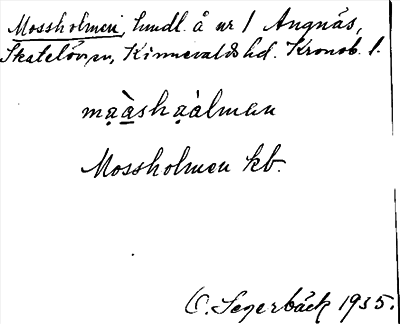 Mossholmen, hmdl. å nr 1 Angnäs,
Skatelövs sn, Kinnevalds hd. Kronob. l.
mạàshạàlman
Mossholmen kb.
C. Segerbäck 1935.